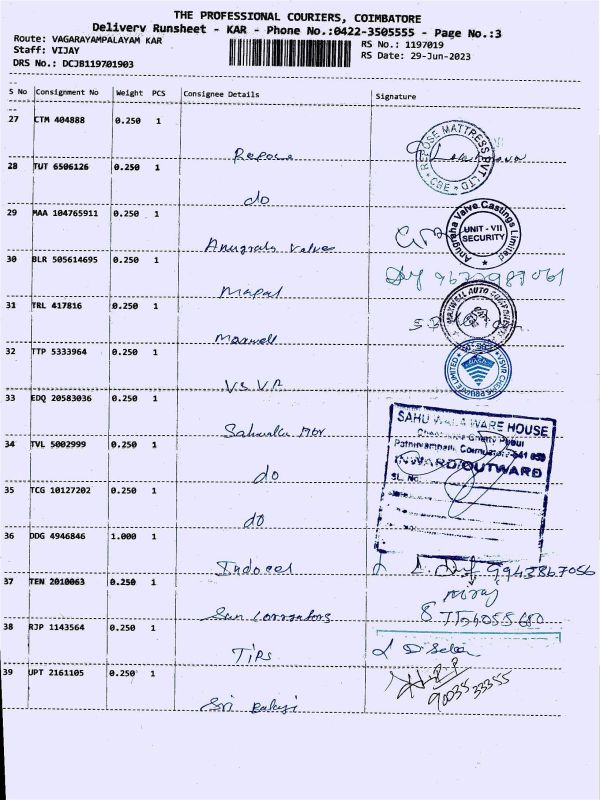 THE PROFESSIONAL COURIERS, COIMBATORE
Delivery Runsheet - KAR - Phone No.:0422-3505555 - Page No.:3
Route: VAGARAYAMPALAYAM KAR
RS No.: 1197019
Staff: VIJAY
RS Date: 29-Jun-2023
DRS No.: DCJB119701903
S No Consignment No Weight PCS Consignee Details Signature
27 CTM 404888 0.250 1
Repose
REPOSE MATTRESS PVT LTD
CBE
28 TUT 6506126 0.250 1
do
29 MAA 104765911 0.250 1
Anugraha Valves
Anugraha Valve Castings Limited
UNIT - VII
SECURITY
30 BLR 505614695 0.250 1
Mapal
31 TRL 417816 0.250 1
Maxwell
MAXWELL AUTO COMPONENTS
32 TTP 5333964 0.250 1
VSVR
33 EDQ 20583036 0.250 1
SAHU WALA WARE HOUSE
Coimbatore-641
INWARD/OUTWARD
SL. No.
34 TVL 5002999 0.250 1
do
35 TCG 10127202 0.250 1
do
36 DDG 4946846 1.000 1
Indocel
9943867056
37 TEN 2010063 0.250 1
Niraj
38 RJP 1143564 0.250 1
TIPS
39 UPT 2161105 0.250 1
90035 33355
Sri Balaji